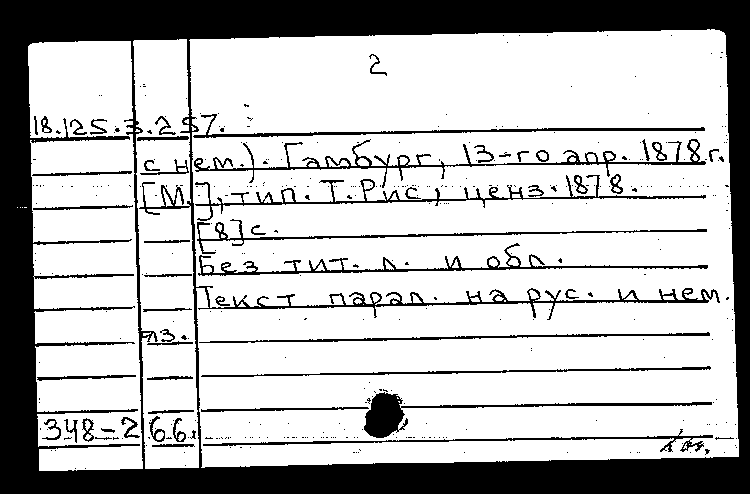 2
18.125.3.257.
с нем.). Гамбург, 13-го апр. 1878 г.
[М.], тип. Т. Рис, ценз. 1878.
[8] с.
Без тит. л. и обл.
Текст парал. на рус. и нем.
яз.
348-2 66.